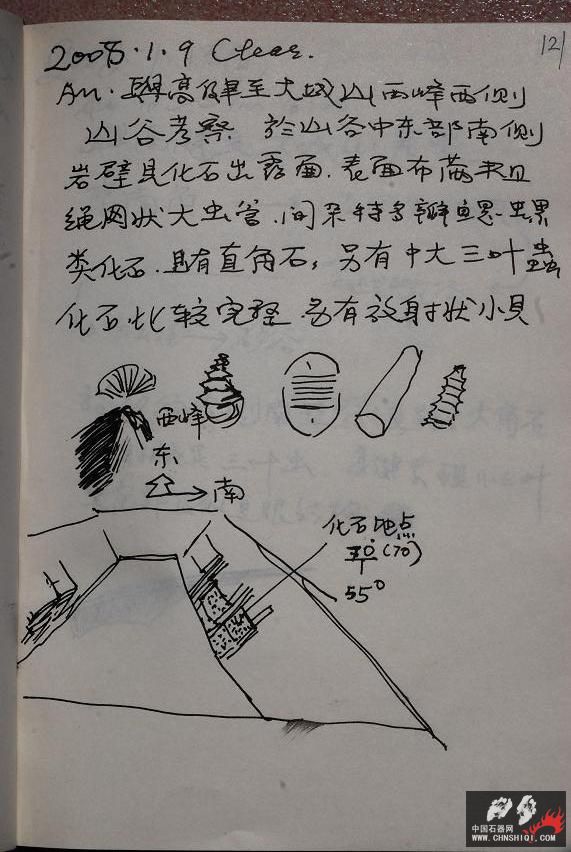 2008.1.9 Clear.
121
Am. 高 至大城山西峰西侧
山谷考察 於山谷中东部南侧
岩壁见化石出露面.表面布满
绳网状大虫管.间杂 虫
类化石.且有直角石,另有中大三叶虫
化石比较完整.另有放射状小贝
西峰
东
南
化石地点
30° (70)
55°
中国石器网
WWW.CHNSHIQI.COM